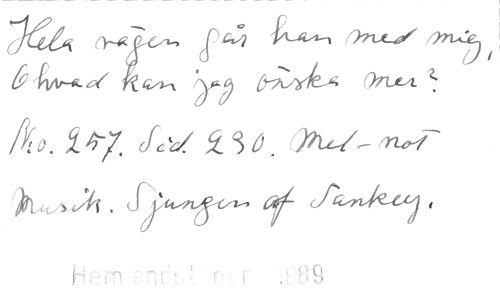 Hela vägen går han med mig,
O hvad kan jag önska mer?
N:o. 257. Sid. 230. Mel-not
Musik. Sjungen af Sankey.
1889